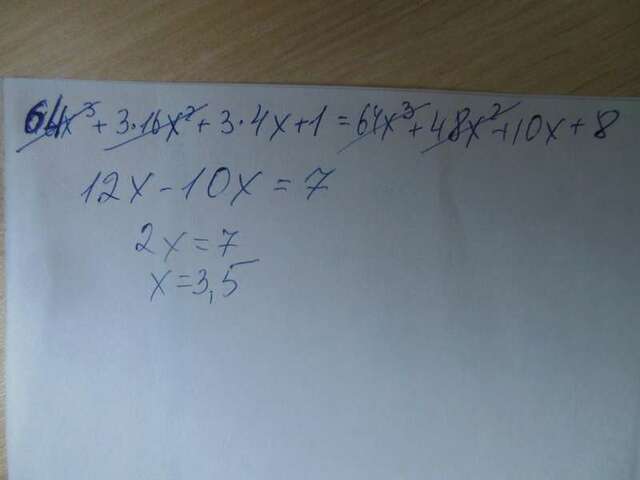 64x³ + 3·16x² + 3·4x + 1 = 64x³ + 48x² + 10x + 8
12x - 10x = 7
2x = 7
x = 3,5